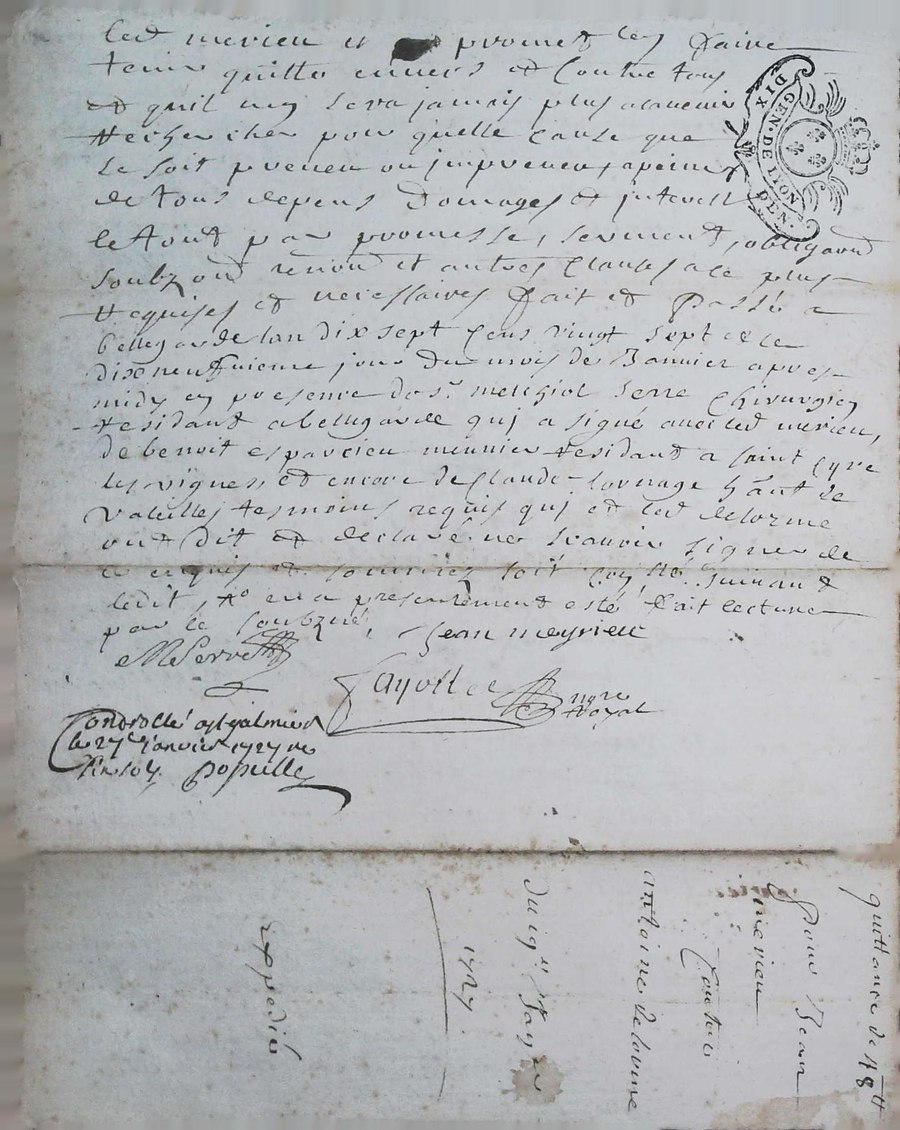 led merieu et promet les faire
tenir quitte envers et contre tous
et quil ny sera jamais plus alauenir
rechercher pour quelle cause que
se soit preueu ou impreueu, apeine
de tous depens domages et interest
le tout par promesse, serment, obligaon
soubzon renon et autres clauses a ce plus
requises et necessaires fait et passé a
bellegarde lan dix sept cens vingt sept et le
dixneufuieme jour du mois de Januier apres
midy en presence de sr. melchiol serre chirurgien
residant a bellegarde qui a signé auec led merieu,
de benoit esparcien meunier residant a saint Cyre
les vignes et encore de Claude hant de
valeilles tesmoins requis qui et led delorme
ont dit et declaré ne scauoir signer de
ce enquis et sommés soit suiuant
ledit, en a presentement esté fait lecture
par le soubzné,
Jean meyrieu
MSerre
Jayollee nore royal
Controllé a St galmier
le 27e janvier 1727 re
Popuelle
quittance de 48tt
pour Jean
merieu
Contre
antoine delorme
du 19e Janr
1727.
expedié
DIX
GEN. DE LION
DEN.